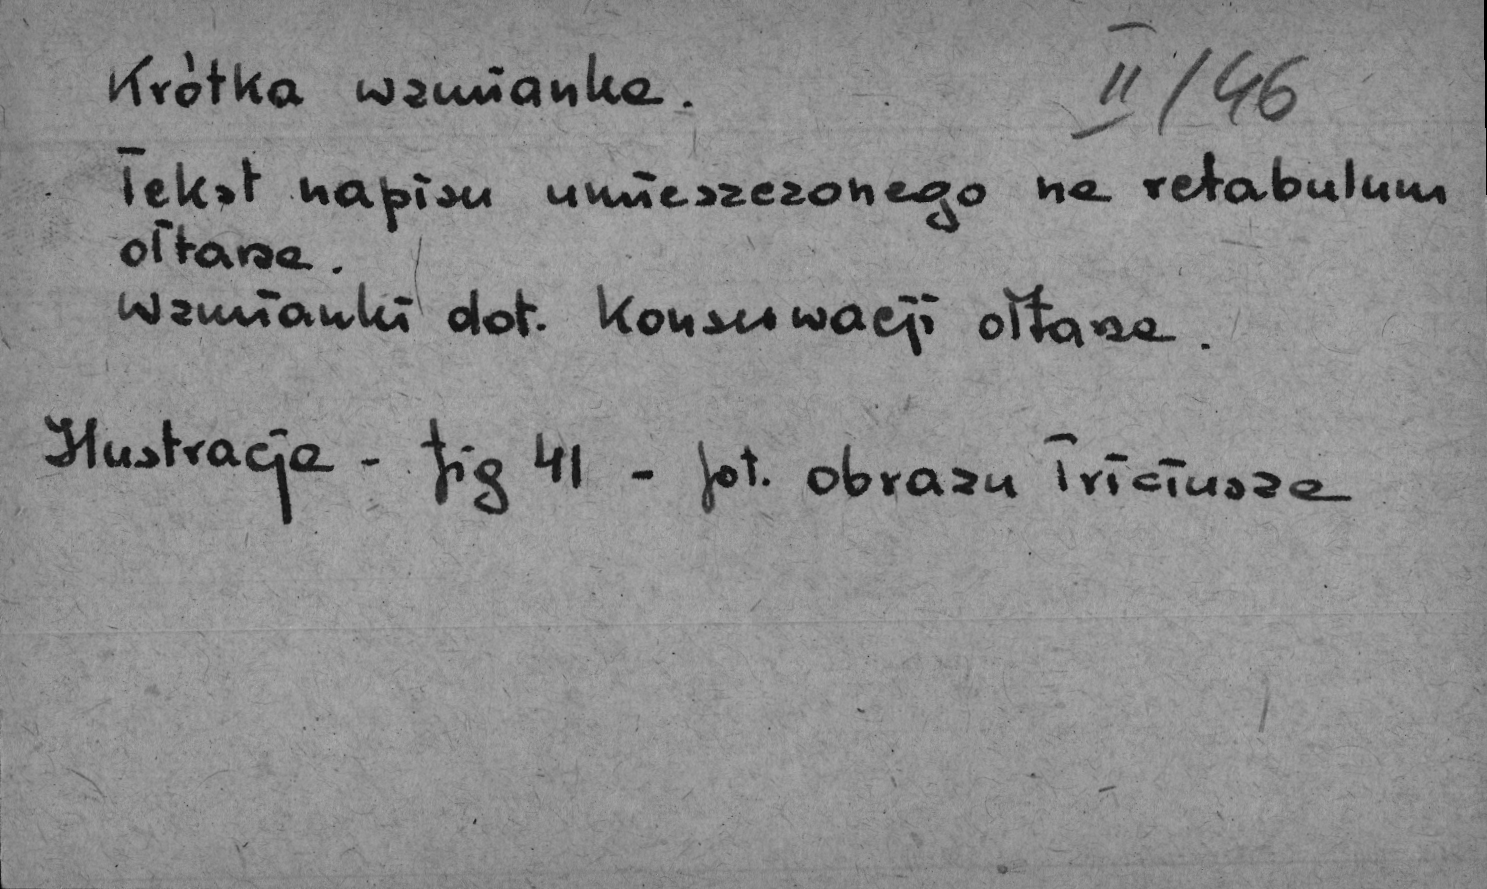 II/46
Krótka wzmianka.
Tekst napisu umieszczonego na retabulum
ołtarza.
Wzmianki dot. konserwacji ołtarza.
Ilustracja - fig 41 - fot. obrazu Triciusza